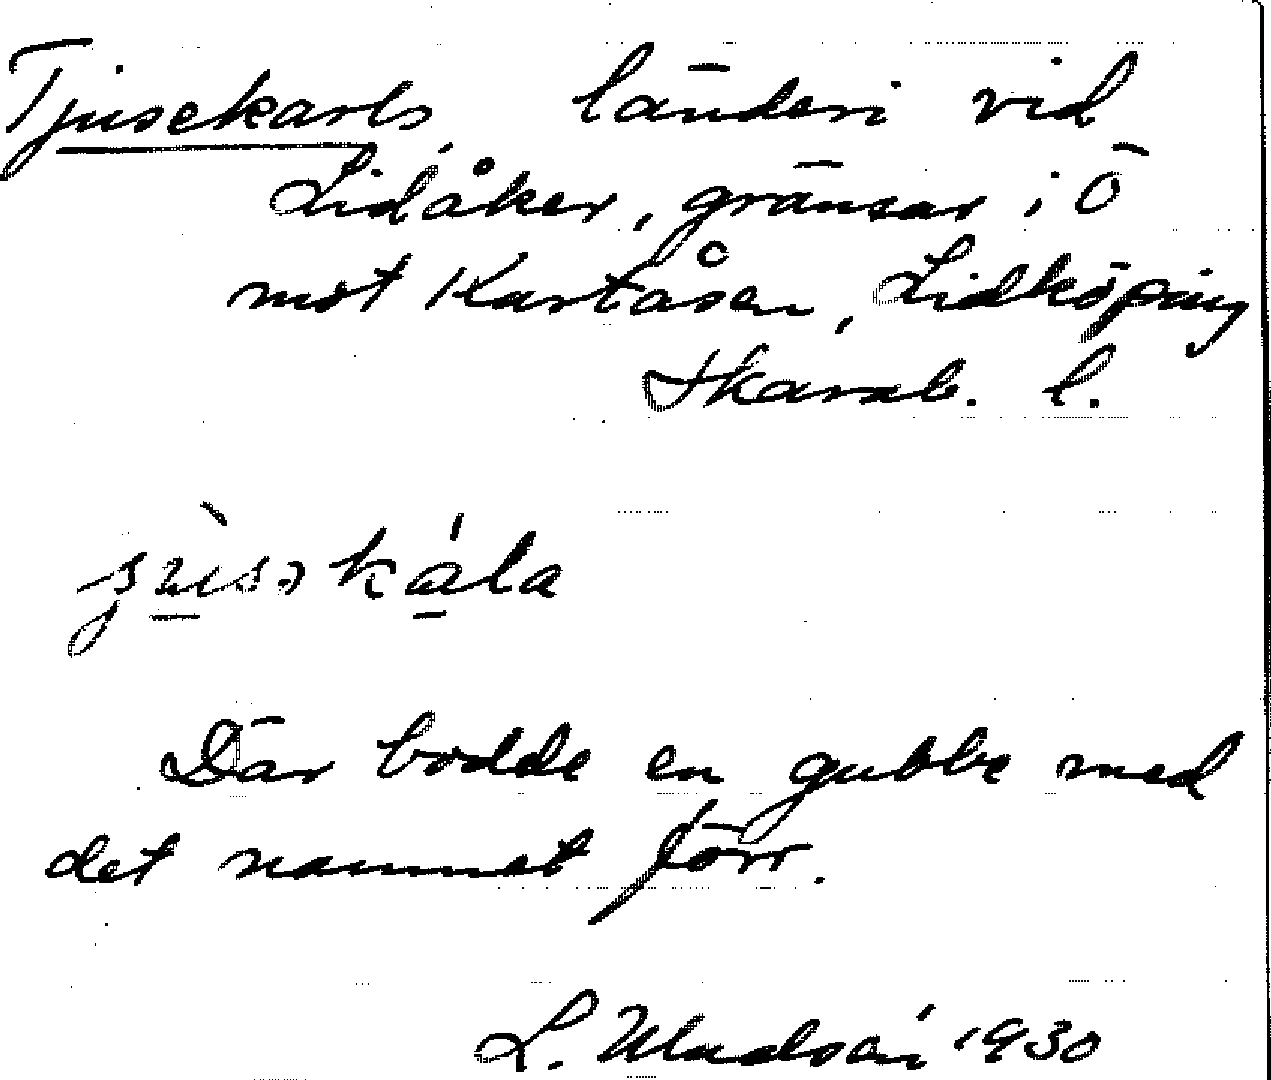 Tjusekarls, länderi vid
Lidåker, gränsar i Ö
mot Kartåsen, Lidköping
Skarab. l.
Där bodde en gubbe med
det namnet förr.
L. 1930